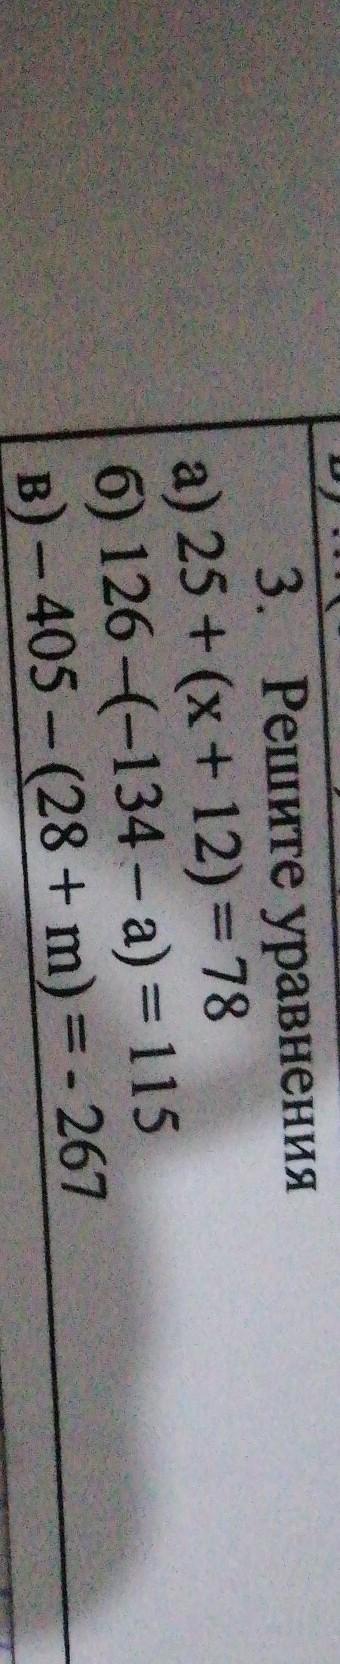 3. Решите уравнения
а) 25 + (x + 12) = 78
б) 126 –(–134 – a) = 115
в) – 405 – (28 + m) = - 267